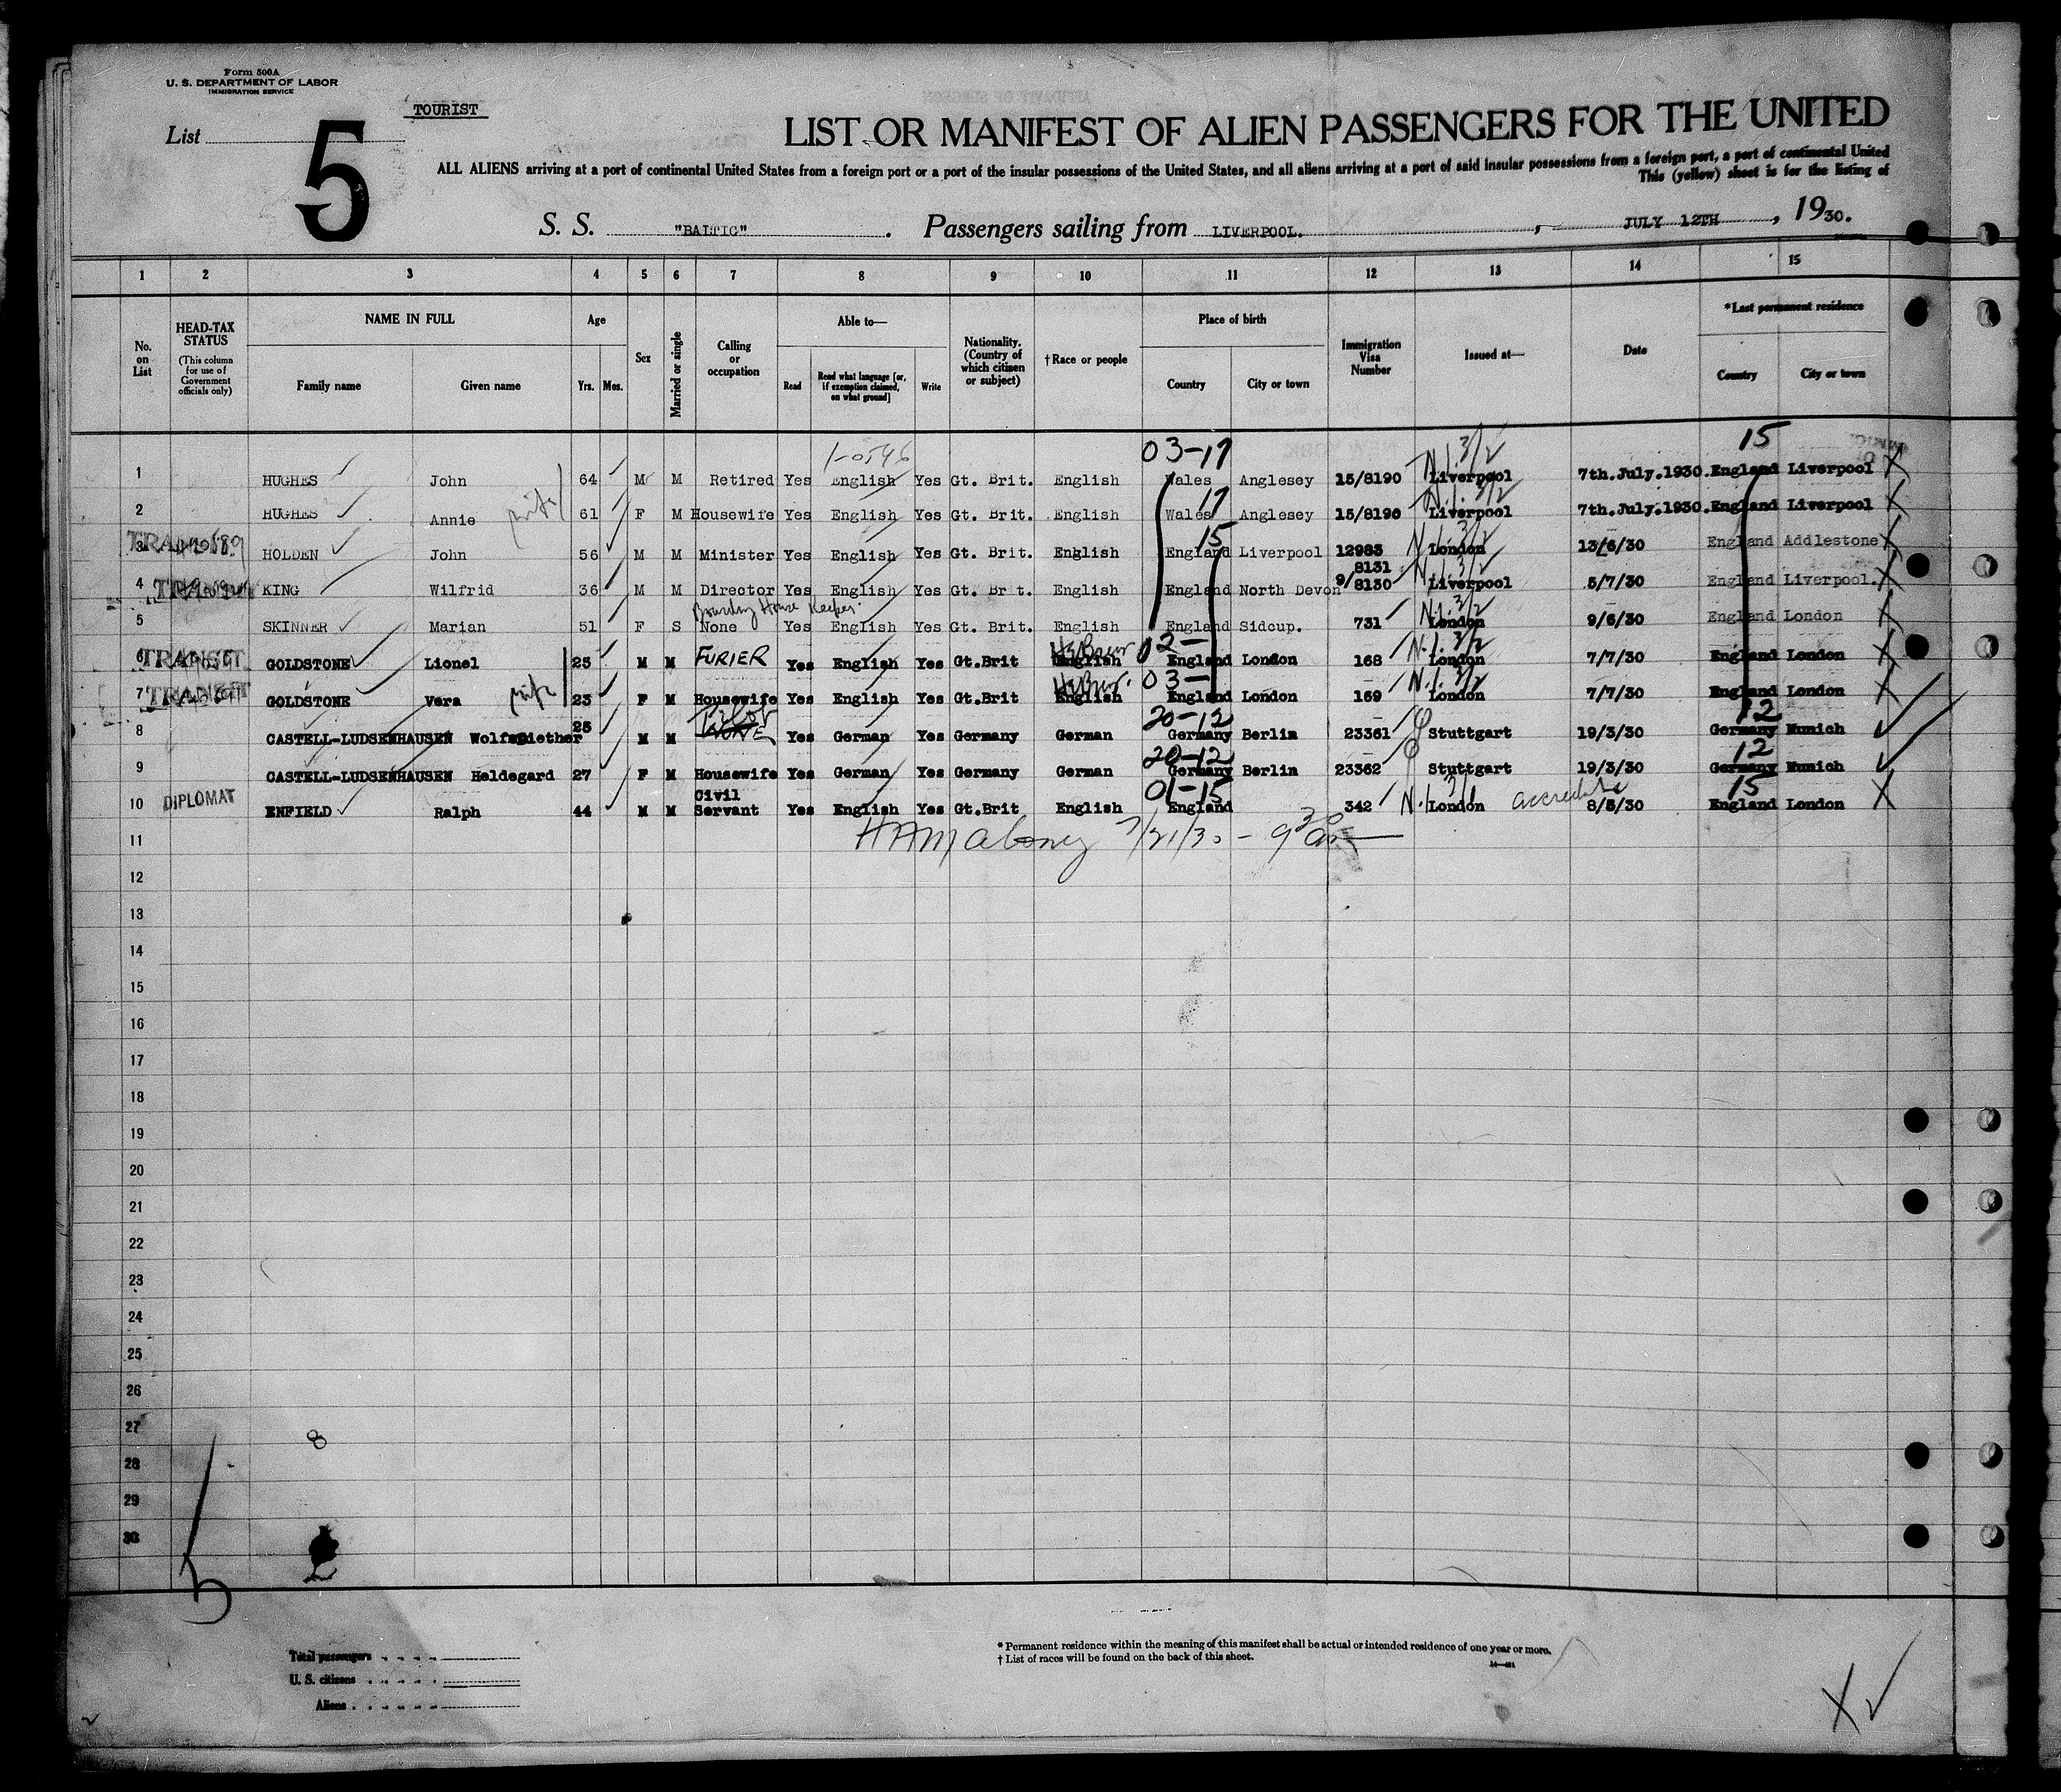 Form 500A
U. S. DEPARTMENT OF LABOR
IMMIGRATION SERVICE
TOURIST
List
5
LIST OR MANIFEST OF ALIEN PASSENGERS FOR THE UNITED
ALL ALIENS arriving at a port of continental United States from a foreign port or a port of the insular possessions of the United States, and all aliens arriving at a port of said insular possessions from a foreign port, a port of continental United
This (yellow) sheet is for the listing of
S. S. "BALTIC". Passengers sailing from LIVERPOOL. , JULY 12TH , 1930.
1 2 3 4 5 6 7 8 9 10 11 12 13 14 15
No. on List
HEAD-TAX STATUS (This column for use of Government officials only)
NAME IN FULL
Family name Given name
Age
Yrs. Mos.
Sex
Married or single
Calling or occupation
Able to—
Read Read what language [or, if exemption claimed, on what ground] Write
Nationality. (Country of which citizen or subject)
†Race or people
Place of birth
Country City or town
Immigration Visa Number
Issued at—
Date
*Last permanent residence
Country City or town
1-0546 03-17 N.I. 3/2 15
1 HUGHES John 64 M M Retired Yes English Yes Gt. Brit. English Wales Anglesey 15/8190 Liverpool 7th.July.1930. England Liverpool X
wife 17 N.I. 3/2
2 HUGHES Annie 61 F M Housewife Yes English Yes Gt. Brit. English Wales Anglesey 15/8190 Liverpool 7th.July.1930. England Liverpool X
15 N.I. 3/2
3 HOLDEN John 56 M M Minister Yes English Yes Gt. Brit. English England Liverpool 12983 London 13/6/30 England Addlestone X
8131 N.I. 3/2
4 KING Wilfrid 36 M M Director Yes English Yes Gt. Brit. English England North Devon 9/8130 Liverpool 5/7/30 England Liverpool. X
Boarding House Keeper. N.I. 3/2
5 SKINNER Marian 51 F S None Yes English Yes Gt. Brit. English England Sidcup. 731 London 9/6/30 England London X
Hebrew 02- N.I. 3/2
6 TRANSIT GOLDSTONE Lionel 25 M M FURIER Yes English Yes Gt.Brit English England London 168 London 7/7/30 England London X
wife Hebrew. 03- N.I. 3/2
7 TRANSIT GOLDSTONE Vera 23 F M Housewife Yes English Yes Gt.Brit English England London 169 London 7/7/30 England London X
Pilot 20-12 12
8 CASTELL-LUDSENHAUSEN Wolfgdiether 25 M M NONE Yes German Yes Germany German Germany Berlin 23361 Stuttgart 19/3/30 Germany Munich
20-12 12
9 CASTELL-LUDSENHAUSEN Heldegard 27 F M Housewife Yes German Yes Germany German Germany Berlin 23362 Stuttgart 19/3/30 Germany Munich
01-15 15
10 DIPLOMAT ENFIELD Ralph 44 M M Civil Servant Yes English Yes Gt.Brit English England 342 London 8/5/30 England London X
11
12
13
14
15
16
17
18
19
20
21
22
23
24
25
26
27
28
29
30
8
Total passengers
U. S. citizens
Aliens
* Permanent residence within the meaning of this manifest shall be actual or intended residence of one year or more.
† List of races will be found on the back of this sheet.